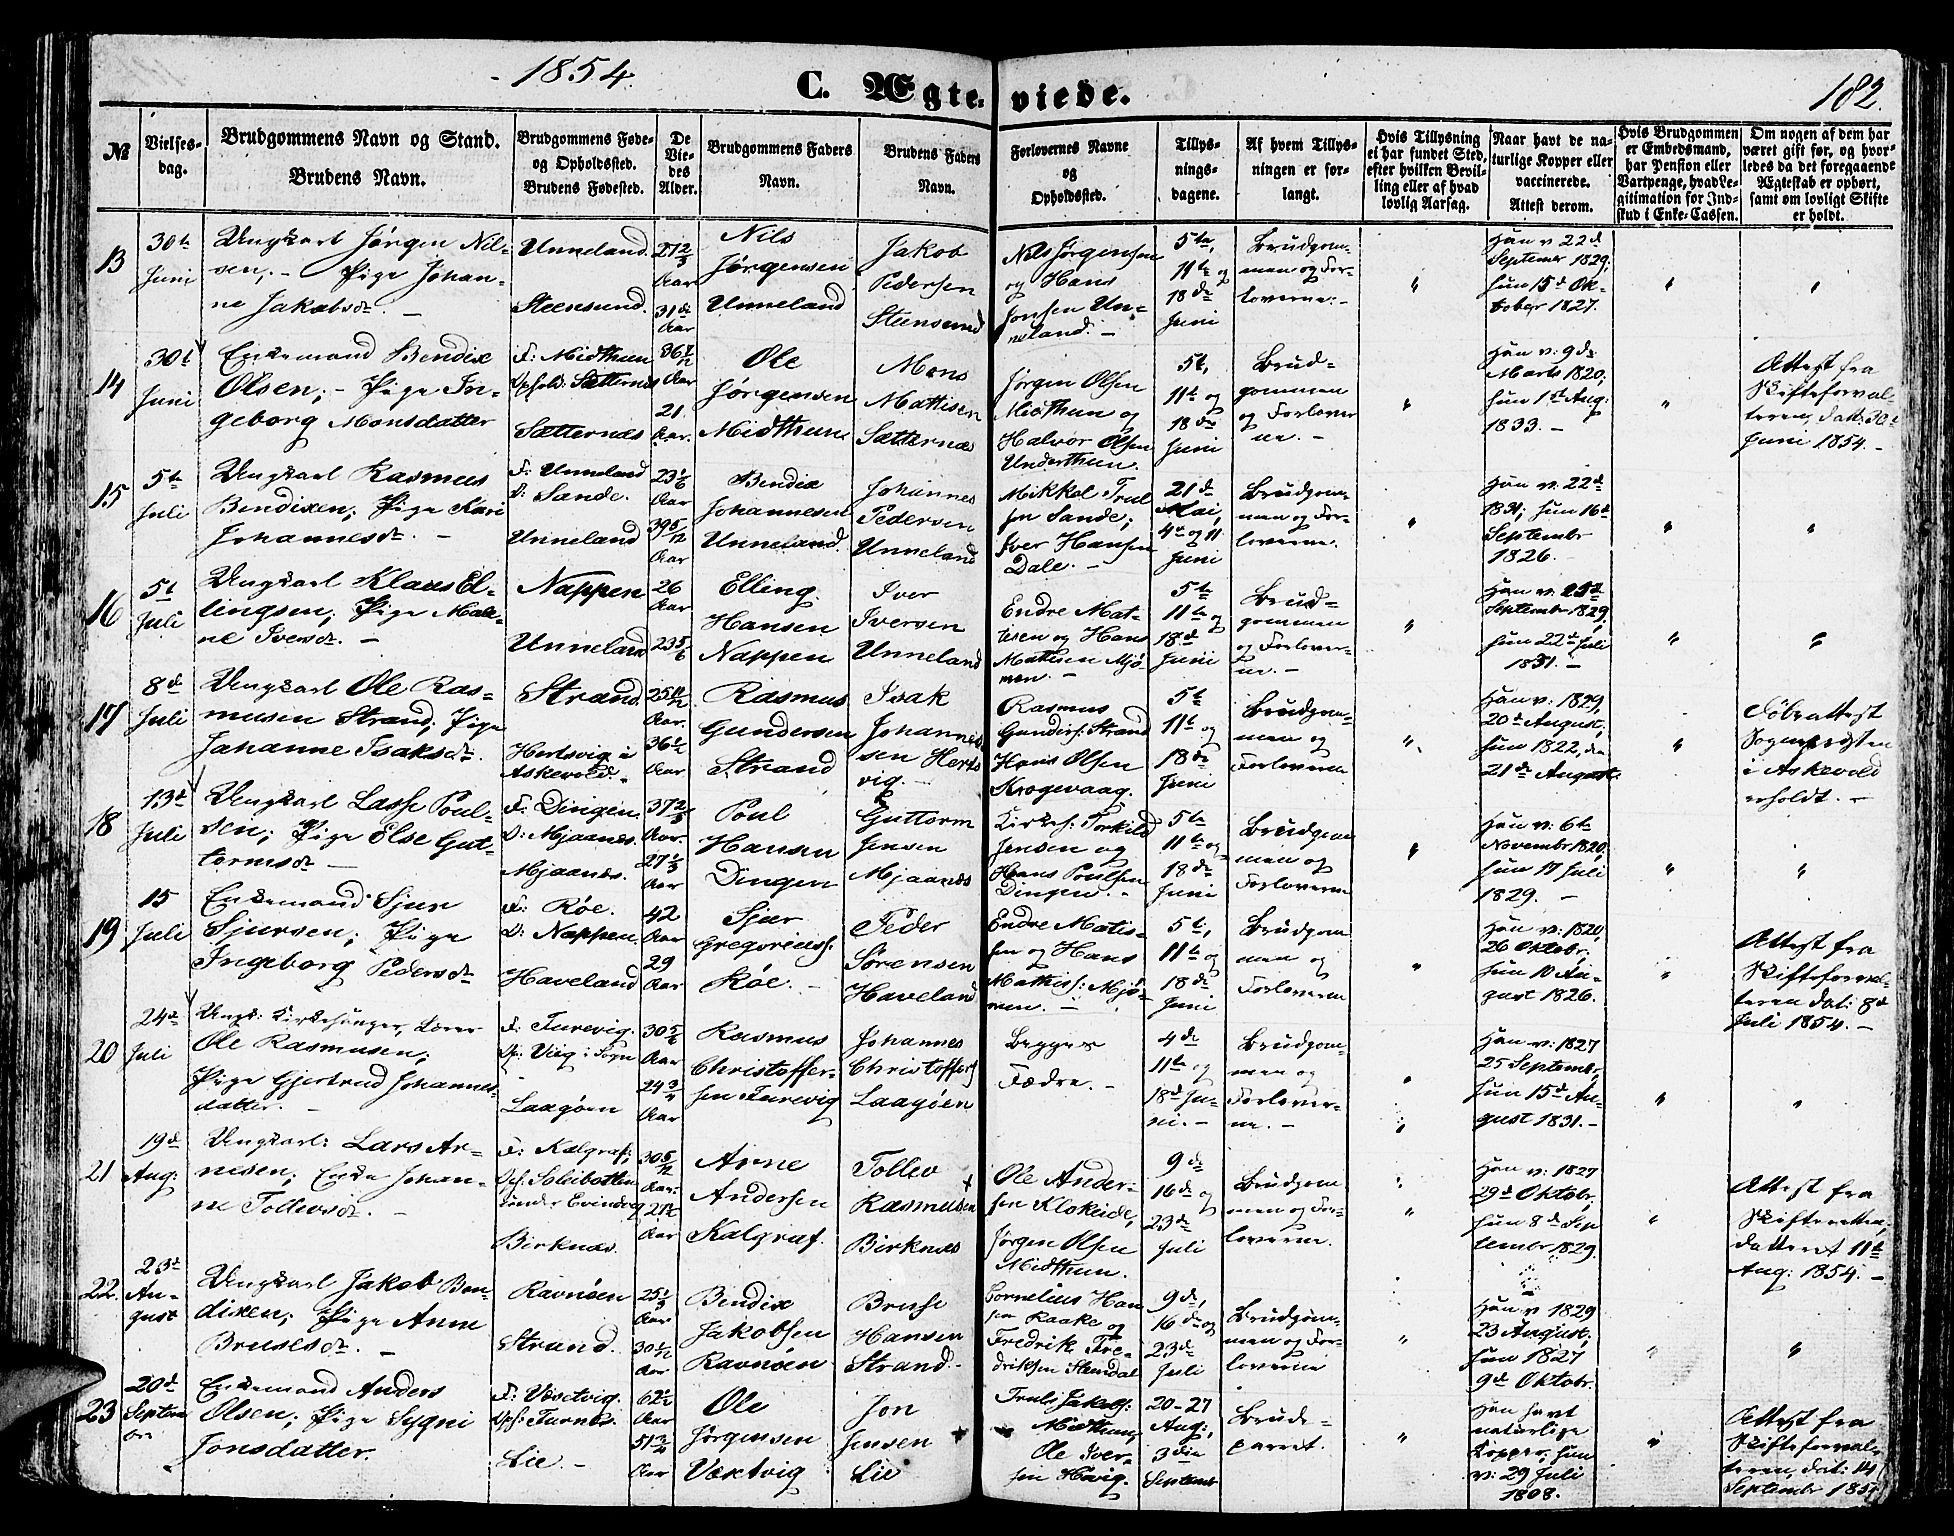 1854.
C. Ægteviede.
182.
№
Vielsesdag.
Brudgommens Navn og Stand.
Brudens Navn.
Brudgommens Føde- og Opholdssted.
Brudens Fødested.
De Viedes Alder.
Brudgommens Faders Navn.
Brudens Faders Navn.
Forlovernes Navne og Opholdssted.
Tillysningsdagene.
Af hvem Tillysningen er forlangt.
Hvis Tillysning ei har fundet Sted, efter hvilken Bevilling eller af hvad lovlig Aarsag.
Naar havt de naturlige Kopper eller vaccinerede.
Attest derom.
Hvis Brudgommen er Embedsmand, har Pension eller Vartpenge, hvad Legitimation for Indskud i Enke-Cassen.
Om nogen af dem har været gift før, og hvorledes da det foregaaende Ægteskab er ophørt, samt om lovligt Skifte er holdt.
13
30te Juni
Ungkarl Jørgen Nilsen; – Pige Johanne Jakobsdr. –
Unneland.
Steensund.
27 2/3 Aar
Nils Jørgensen Unneland
Jakob Pedersen Steensund
Nils Jørgensen og Hans Jonsen Unneland. –
5te, 11te og 18de Juni
Brudgommen og Forloverne. –
"
Han v: 22d September 1829, hun 15d Oktober 1827.
"
"
14
30t Juni
Enkemand Bendix Olsen; – Pige Ingeborg Monsdatter
F: Midthun
Ophold: Sætternæs
Sætternæs
21. Aar.
Ole Jørgensen Midthun
Mons Mattisen Sætternæs
Jørgen Olsen Midthun og Halvor Olsen Underthun.
5t, 11te og 18de Juni
Brudgommen og Forloverne. –
"
Han v: 9de Marts 1820; hun 1st Aug: 1833. –
"
Attest fra Skifteforvalteren, datt: 30t Juni 1854. –
15
5te Juli
Ungkarl Rasmus Bendixen; Pige Kari Johannesdr. –
F: Unneland
O: Sande.
Unneland
23 1/6 Aar
39 5/12 Aar
Bendix Johannesen Unneland.
Johannes Pedersen Unneland
Mikkel Trulsen Sande; Iver Hansen Dale. –
21de Mai, 4de og 11 Juni
Brudgommen og Forloverne.
"
Han v: 22de 1831; hun 16de Septembr 1826.
"
"
16
5t Juli
Ungkarl Klaus Ellingsen; Pige Malene Iversdr. –
Nappen
Unneland
26 Aar
23 5/6
Elling Hansen Nappen
Iver Iversen Unneland
Endre Matisen og Hans Mathisen Mjømen. –
5te 11te og 18de Juni
Brudgommen og Forloverne. –
"
Han v: 25de September 1829, hun 22de Juli 1831. –
"
"
17
8de Juli
Ungkarl Ole Rasmusen Strand; Pige Johanne Isaksdr.
Strand.
Hertsvig i Askevold. –
25 11/12 Aar.
36 1/2 Aar
Rasmus Gundersen Strand
Isak Johannesen Hertsvig. –
Rasmus Gunders: Strand
Hans Olsen Krogevaag.
5te 11te og 18de Juni
Brudgommen og Forloverne
"
Han v: 1829, 20de August, hun 1822, den 21de August.
"
Døbeattest Sognepresten i Askevold erholdt. –
18
13de Juli
Ungkarl Lasse Poulsen; Pige Else Guttormsdr –
F: Dingen
O: Mjaanæs.
Mjaanæs.
37 2/3 Aar.
27 1/3 Aar
Poul Hansen Dingen
Guttorm Jensen Mjaanæs
Kirkes: Torkild Jensen og Hans Poulsen Dingen. –
5te 11te og 18de Juni
Brudgommen og Forloverne
"
Han v: 6te November 1820, hun 17 Juli 1829. –
"
"
19
15 Juli
Enkemand Sjur Sjursen; Pige Ingeborg Pedersdr
F: Røe.
O: Nappen.
Haveland
42 Aar
29 Aar
Sjur Gregorius: Røe.
Peder Sørensen Haveland
Endre Matissen og Hans Mathiss: Mjømen. –
5te, 11te og 18de Juni
Brudgommen og Forloverne
"
Han v: 1820, 26 Oktobr, hun 10 August 1826.
"
Attest fra Skifteforvalteren dat: 8d Juli 1854. –
20
24de Juli
Ungk: Kirkesanger, Lærer Ole Rasmusen; Pige Gjertrud Johannesdatter. –
F: Furevig.
Op: Viig i Sogn
Laagøen
24 3/4 Aar
Rasmus Christoffersen Furevig
Johannes Christoffers: Laagøen
Begges Fædre. –
4de 11te og 18d Juni. –
Brudgommen og Forloverne. –
"
Han v: 1827 25 Septembr, hun 15de August 1831. –
"
"
21
19d Aug:
Ungkarl: Lars Arnesen; Enke Johanne Tollevsdr. –
F: Kalgraf;
under Evindvig
Birknæs.
30 5/12 Aar.
Arne Andersen Kalgraf.
Tollev Rasmusen Birknæs
Ole Andersen Klokeide, Jørgen Olsen Midthun.
9de 16de og 23de Juli
Brudgommen og Forloverne.
"
Han v: 1827 29d Oktobr, hun 8de September 1829.
"
Attest fra Skifteretten, datteret 11te Aug: 1854. –
22.
23t August
Ungkarl Jakob Bendixen; Pige Anne Brusesdr. –
Ravnøen
Strand.
25 1/3 Aar
Bendix Jakobsen Ravnøen
Bruse Hansen Strand. –
Cornelius Hansen Raake og Fredrik Fredriksen Stendal
9de, 16de og 23de Juli
Brudgommen og Forloverne
"
Han v 1829 23 August; hun 1827 9de Oktobr.
"
"
23
20d Septembr
Enkemand Anders Olsen; Pige Sygni Jonsdatter.
F: Væsetvig.
Oph: Furnes.
Lie. –
62 1/2 Aar
51 3/4 Aar
Ole Jørgensen
Jon Jensen Lie
Truls Jakobs: Midthun, Ole Iversen Høvig.
20–27 Aug:, 3die Septembr
Brudeparret.
"
Han havt naturlige Kopper, hun v: 29 Juli 1808.
"
Attest fra Skifteforvalteren, dat: 14 September 1854